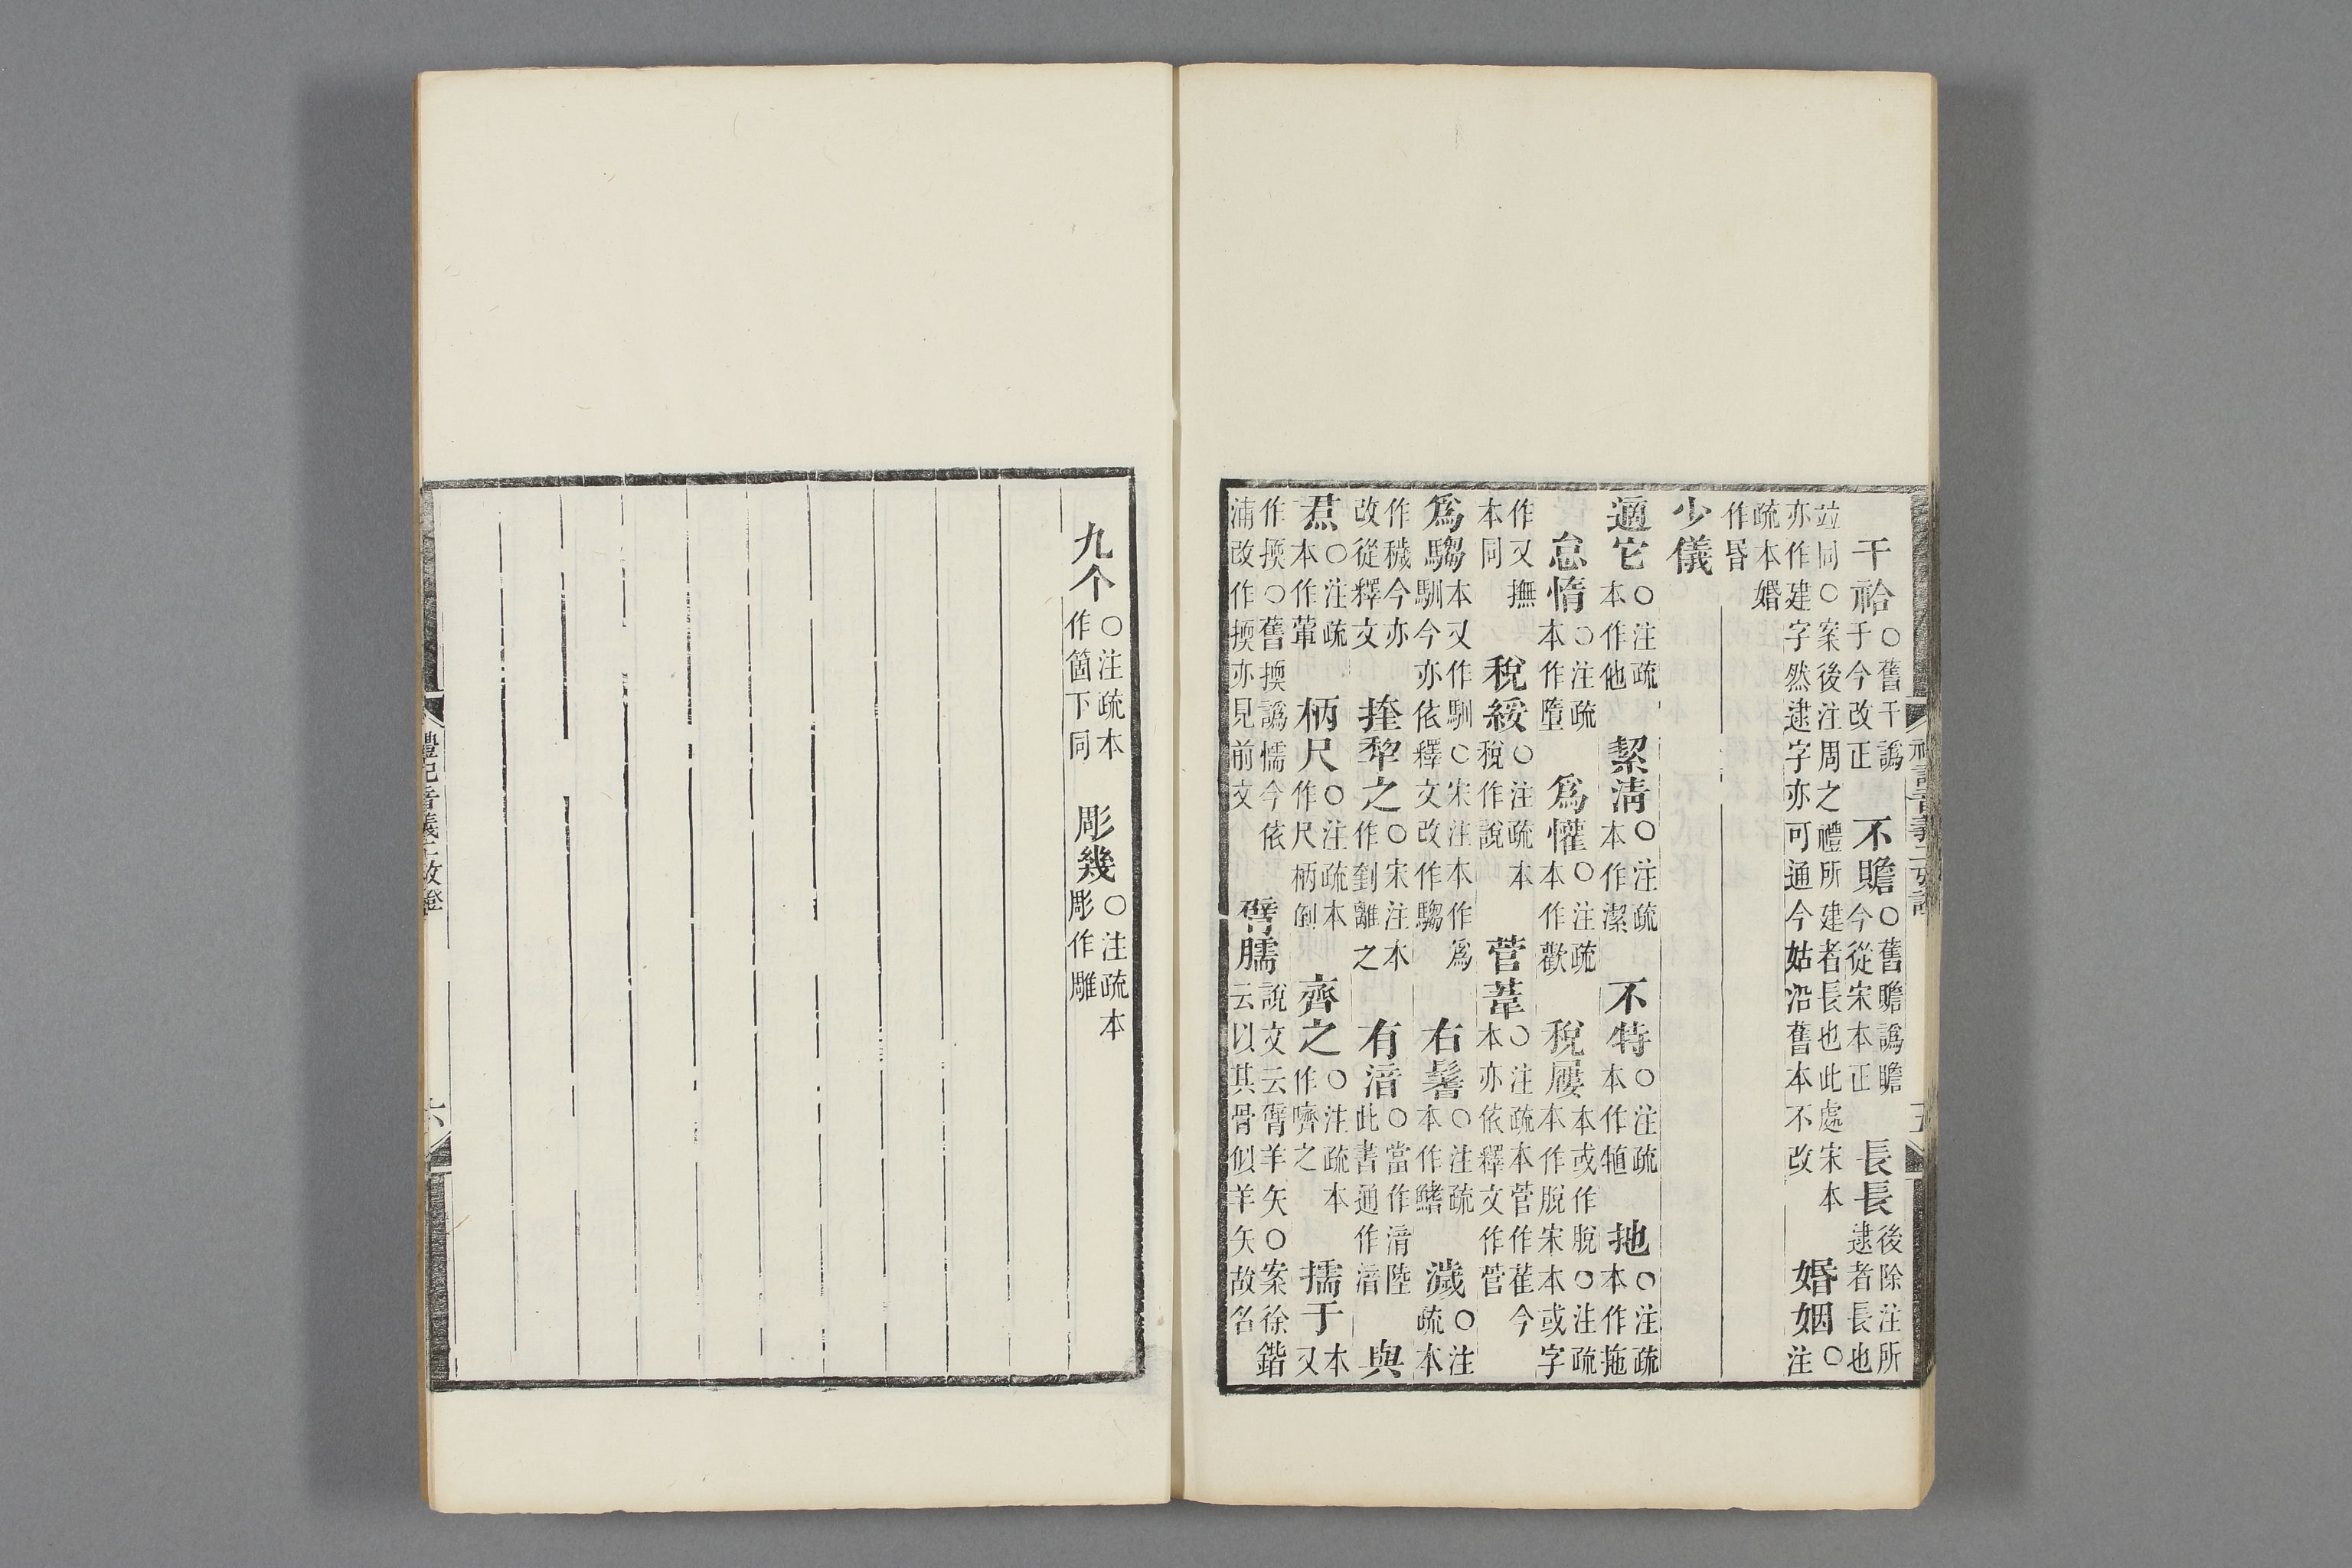 干祫○舊干譌于今改正　不贍○舊瞻譌瞻今從宋本正　長長後除注所逮者長也
竝同○案後注周之禮所建者長也此處宋本亦作建字然逮字亦可通今姑沿舊本不改　婚姻○注
疏本婚作昏
少儀
適它○注疏本作他　絜清○注疏本作潔　不特○注疏本作犆　扡○注疏本作拖
怠惰○注疏本作墮　爲懽○注疏本作歡　稅屨本或作脫○注疏本作脫宋本或字
作又撫本同　稅綏○注疏本稅作說　菅葦○注疏本菅作萑今本亦依釋文作菅
爲騶本又作馴○宋注本作爲馴今亦依釋文改作騶　右鬐○注疏本作鰭　濊○注疏本
作穢今亦改從釋文　挃犂之○宋注本作劃離之　有湆○當作湇陸此書通作湆　與
焄○注疏本作葷　柄尺○注疏本作尺柄倒　齊之○注疏本作嚌之　擩于本又
作擩○舊擩譌懦今依浦改作擩亦見前文　臂臑說文云臂羊矢○案徐鍇云以其骨似羊矢故名
九个○注疏本作箇下同　彫幾○注疏本彫作雕
禮記音義二攷證
六